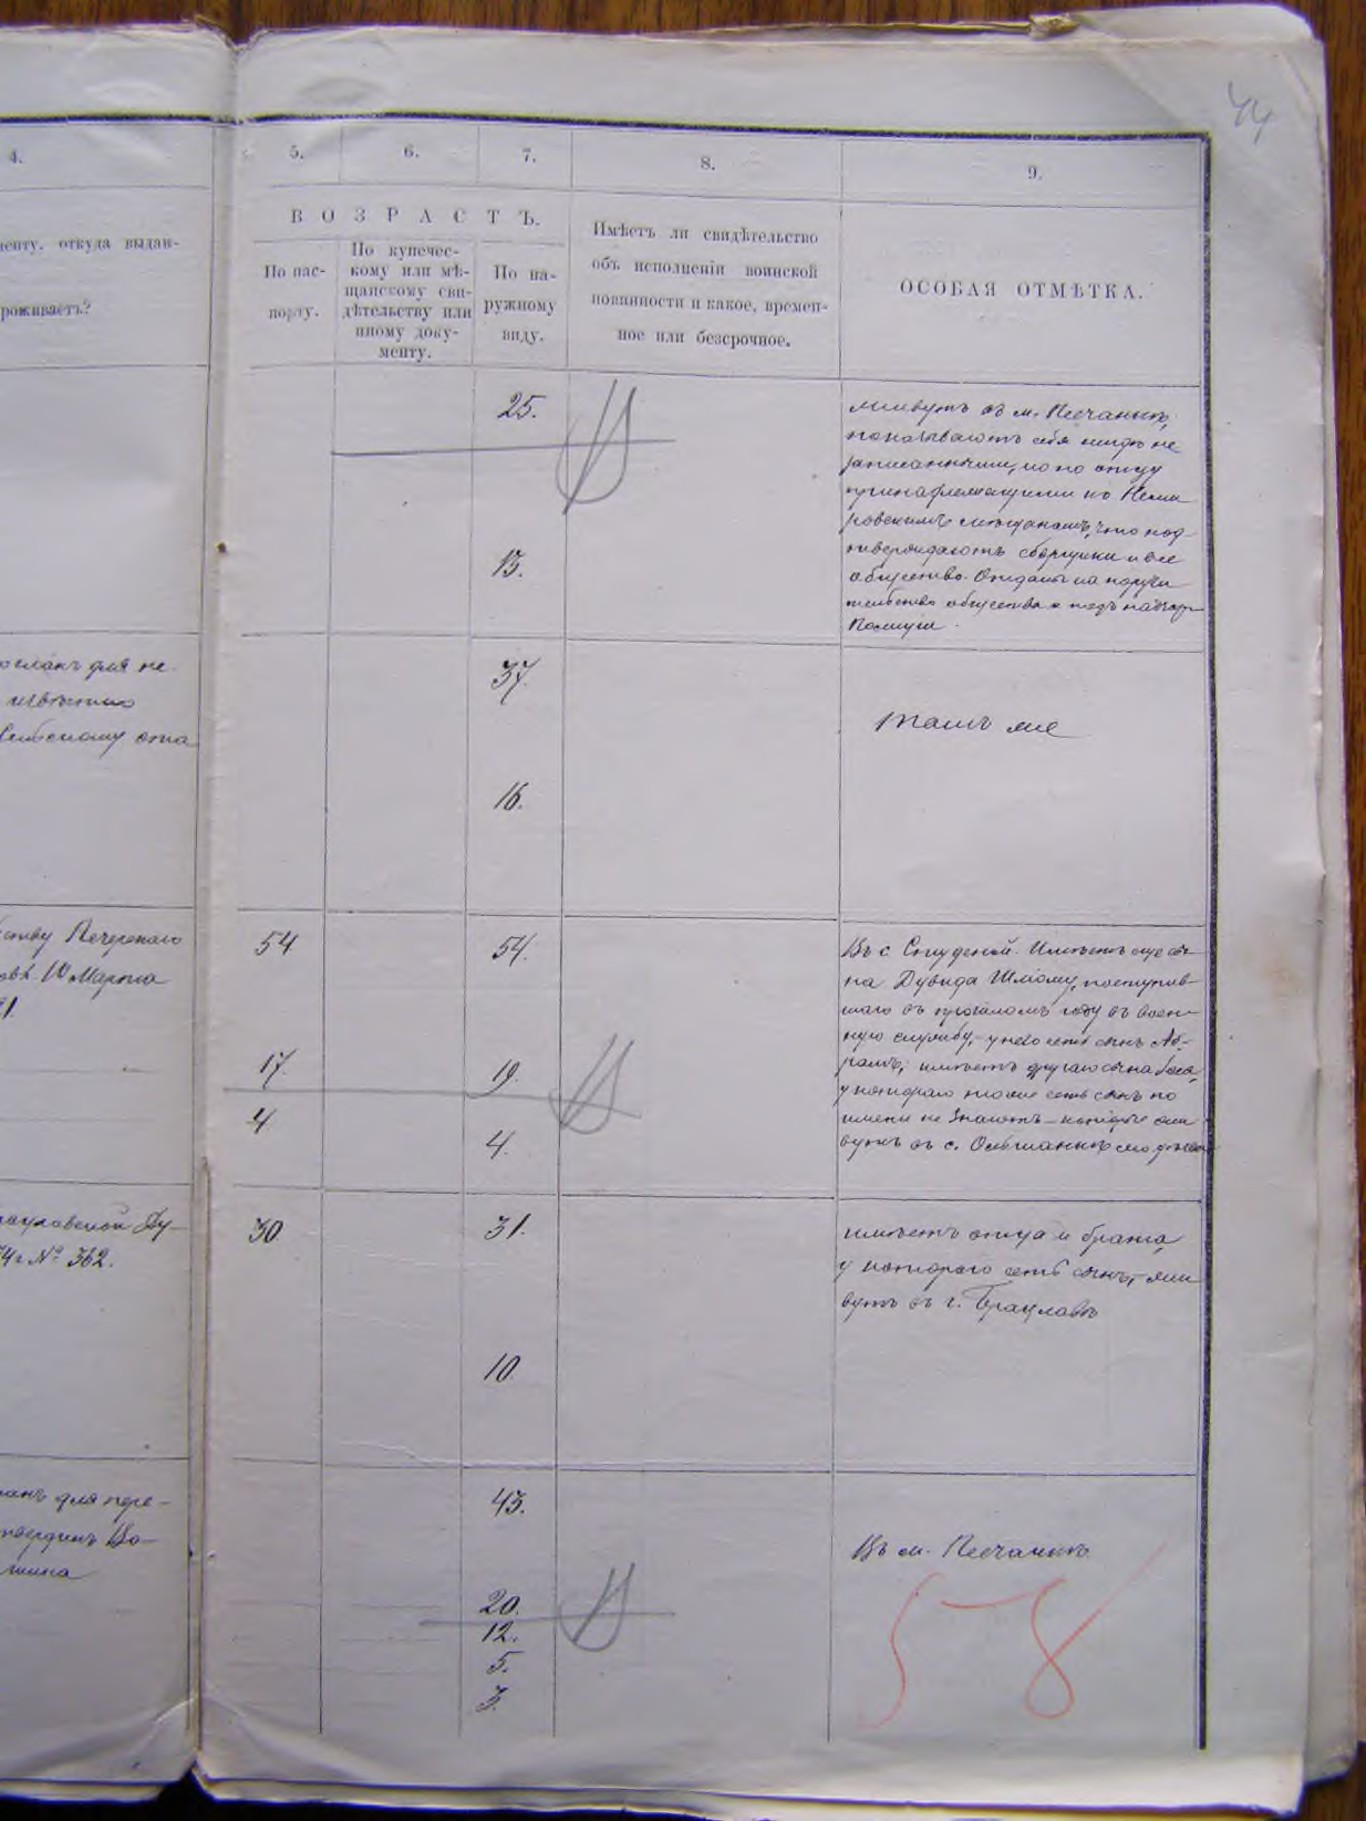 44
4.
5.
6.
7.
8.
9.
менту. откуда выдан-
роживаетъ?
ВОЗРАСТЪ.
По пас-
порту.
По купечес-
кому или мѣ-
щанскому сви-
дѣтельству или
иному доку-
менту.
По на-
ружному
виду.
Имѣетъ ли свидѣтельство
объ исполненіи воинской
повинности и какое, времен-
ное или безсрочное.
ОСОБАЯ ОТМѢТКА.
25.
13.
живутъ въ м. Песчанкѣ,
показываютъ себя нигдѣ не
записанными, но по отцу
принадлежащими къ Неми
ровскимъ мѣщанамъ, что под
тверждаютъ сборщики и все
общество. Отданы на поручи
тельство общества и подъ надзоръ
Полиціи.
для не
извѣстно
отца
37.
16.
тоже
ству Печерского
10 Марта
1.
54
17.
4
54.
19.
4.
Въ с. Студеной. Имѣетъ еще сы-
на Дувида Шлёму, поступив-
шаго въ прошломъ году въ воен-
ную службу, у него есть сынъ Аб-
рамъ; имѣетъ другаго сына
у котораго тоже есть сынъ по
имени не знаютъ – которые жи
вутъ въ с. Ольшанкѣ
рацлавской Ду-
74 г № 362.
30.
31.
10.
имѣетъ отца и брата,
у котораго есть сынъ, – жи
вутъ въ г. Брацлавѣ
для пере-
43.
20.
12.
5.
3.
Въ м. Песчанкѣ
5 – 8